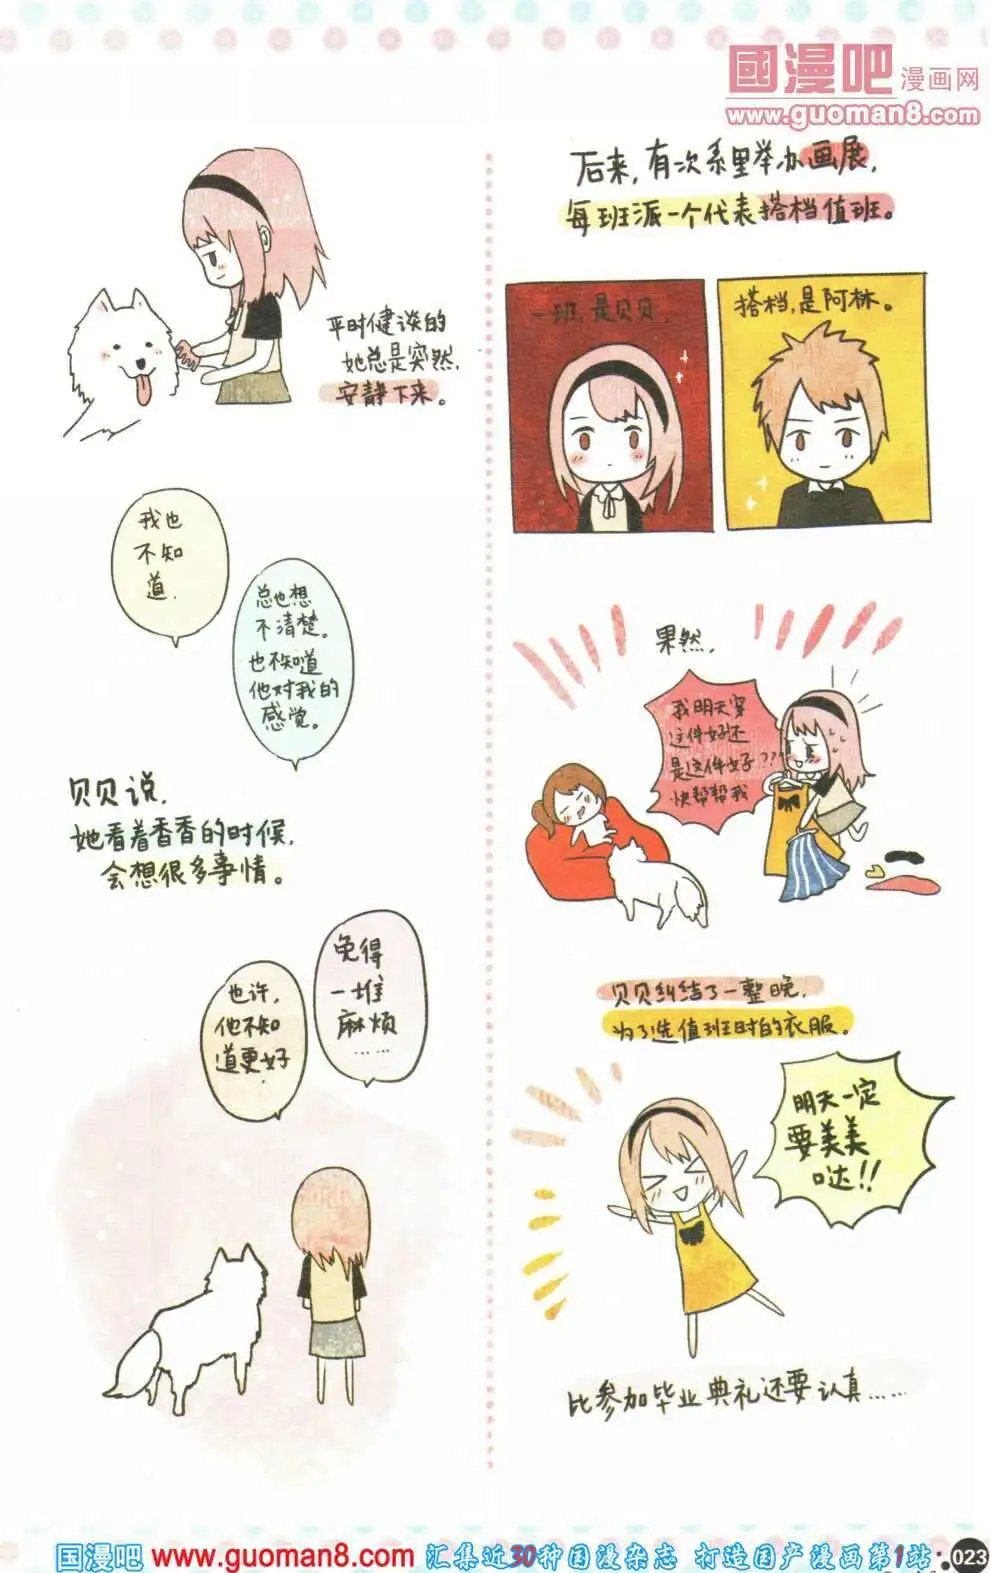 國漫吧 漫画网
www.guoman8.com
平时健谈的
她总是突然,
安静下来。
我也
不知
道.
总也想
不清楚。
也不知道
他对我的
感觉。
贝贝说,
她看着香香的时候,
会想很多事情。
免得
一堆
麻烦
……
也许,
他不知
道更好
后来,有次系里举办画展,
每班派一个代表搭档值班。
一班,是贝贝,
搭档,是阿林。
果然,
我明天穿
这件好还
是这件好???
快帮帮我
贝贝纠结了一整晚,
为了选值班时的衣服。
明天一定
要美美
哒!!
比参加毕业典礼还要认真……
国漫吧 www.guoman8.com 汇集近30种国漫杂志 打造国产漫画第1站
023